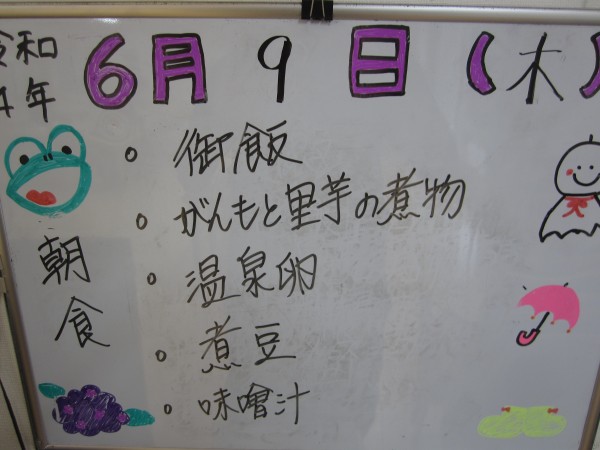 令和
4年
6月9日(木)
朝食
。御飯
。がんもと里芋の煮物
。温泉卵
。煮豆
。味噌汁